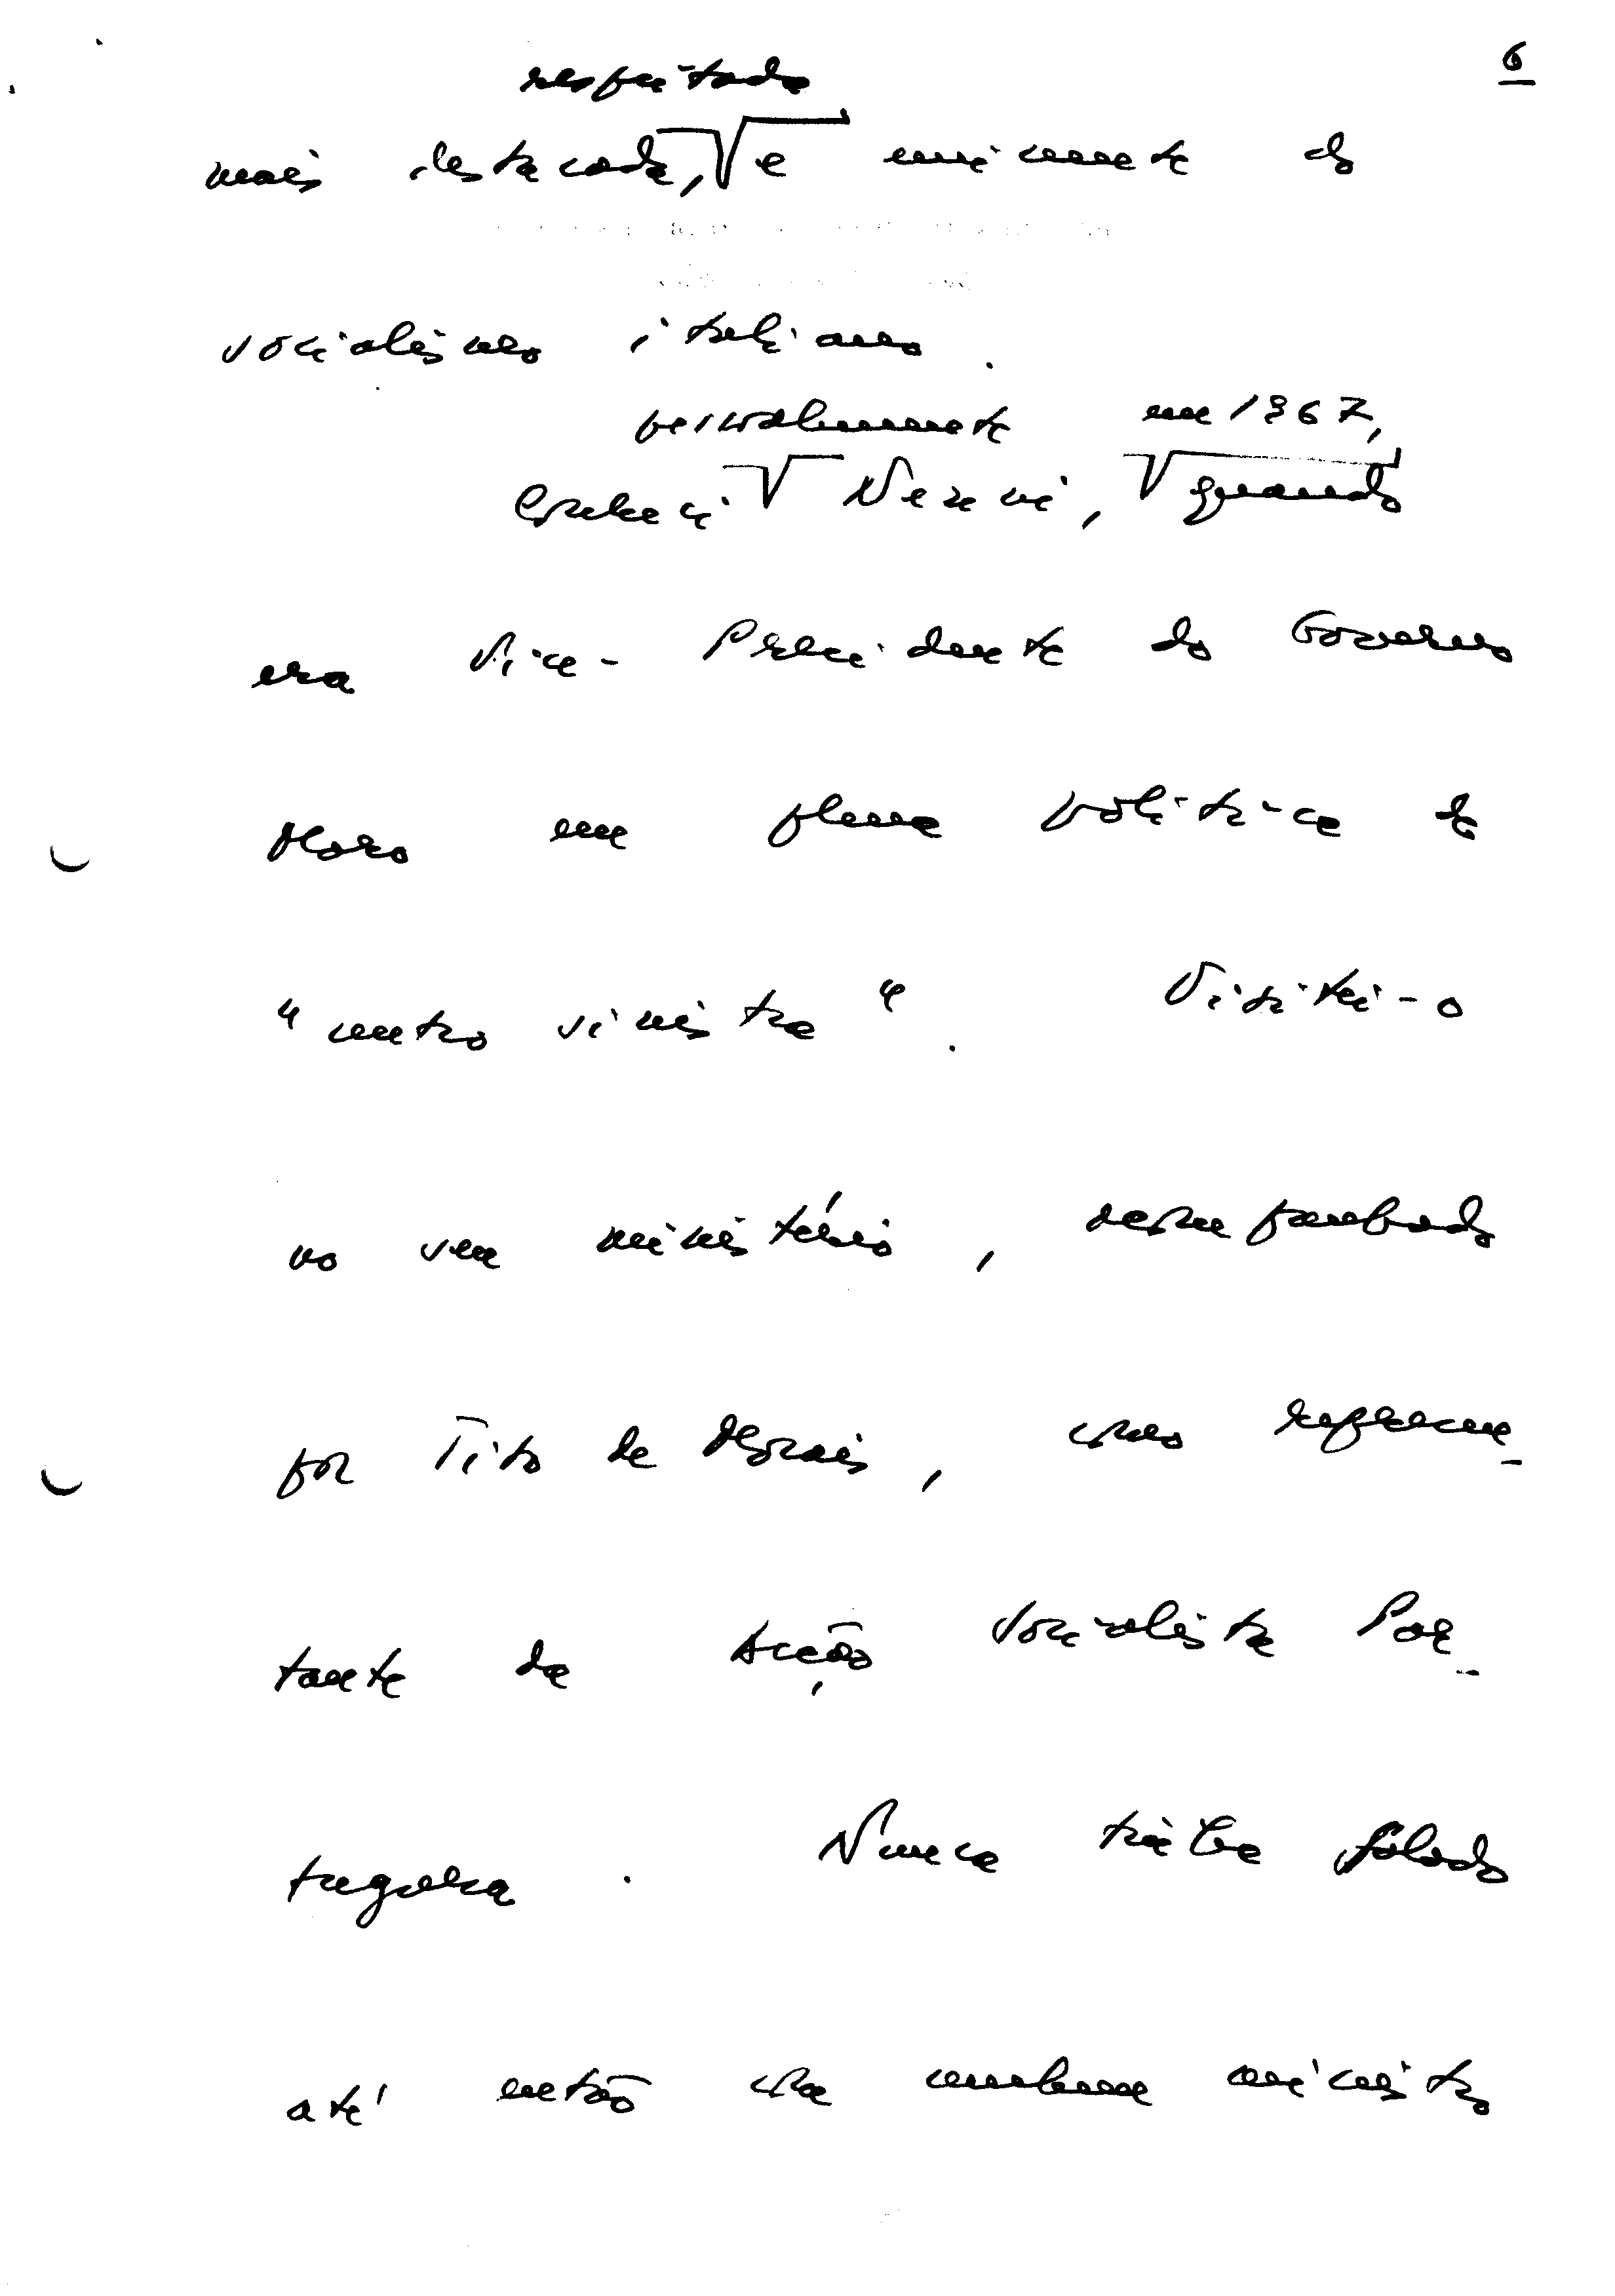 6
respeitada
mais destacada, e eminente do
socialismo italiano.
pessoalmente em 1967,
Conheci Nenni, quando
era Vice-Presidente do Governo
Moro em plena política de
"centro sinistra". Visitei-o
no seu ministério, acompanhado
por Tito de Morais, como represen-
tante da Acção Socialista Por-
tuguesa. Nunca tinha falado
até então com nenhum ministro